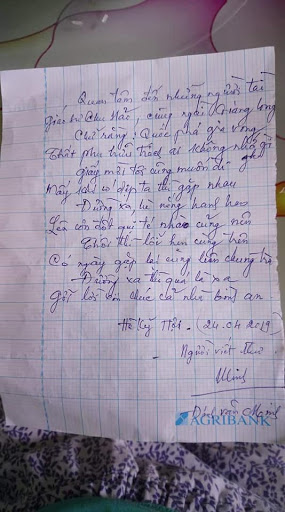 Quan tâm đến những người tài
Giáo sư Chu Hắc, cùng ngài Giáng long
Chữ rằng: Quốc phá gia vong
Thất phu hữu trách ai không nhớ gì
giấy mời tôi cũng muốn đi
Mấy khi có dịp ta thì gặp nhau
Đường xa, lè nóng hanh hao
Lên cơn đột qụi té nhào cũng nên
Thôi thì lỗi hẹn cùng trên
Có ngày gặp lại cùng liên chung trà
Đường xa thì qua là xa
gửi lời chúc cả nhà bình an
Hà Kỳ Ngộ. (24.04.2019)
Người viết thư
Minh
Văn Minh
AGRIBANK